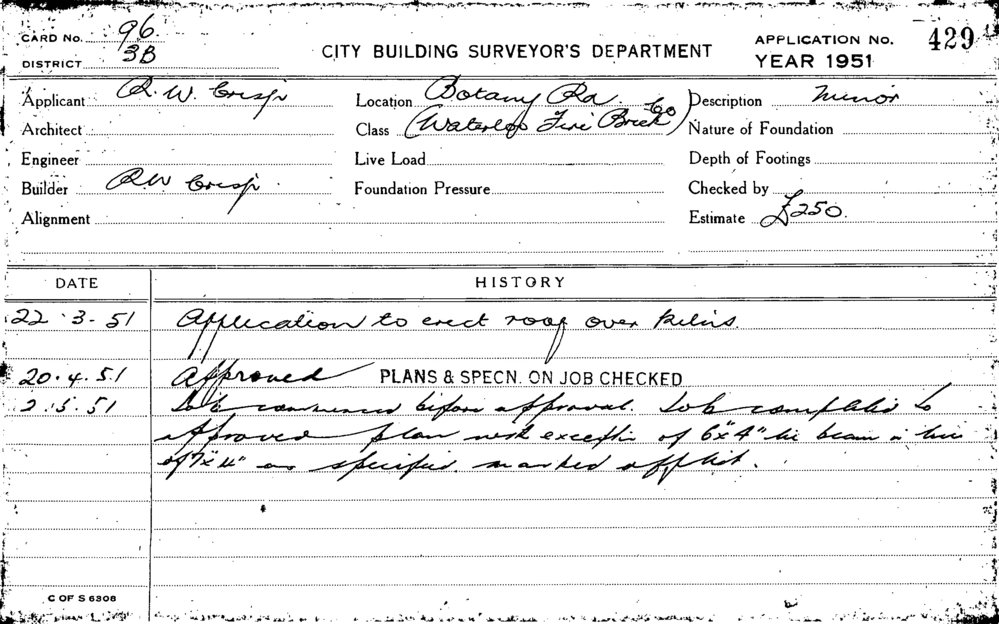 CARD No. 96
DISTRICT 3B
CITY BUILDING SURVEYOR'S DEPARTMENT
APPLICATION No. 429
YEAR 1951
Applicant R. W. Crisp
Location Botany Rd
Description Minor
Architect
Class (Waterloo Fire Brick Co)
Nature of Foundation
Engineer
Live Load
Depth of Footings
Builder R W Crisp
Foundation Pressure
Checked by
Alignment
Estimate £250.
DATE HISTORY
22.3-51 Application to erect roof over kilns.
20.4.51 Approved PLANS & SPECN. ON JOB CHECKED
2.5.51 Job commenced before approval. Job completed to
approved plan with exception of 6"x4" tie beam in lieu
of 7"x4" as specified marked off plot.
C OF S 6308